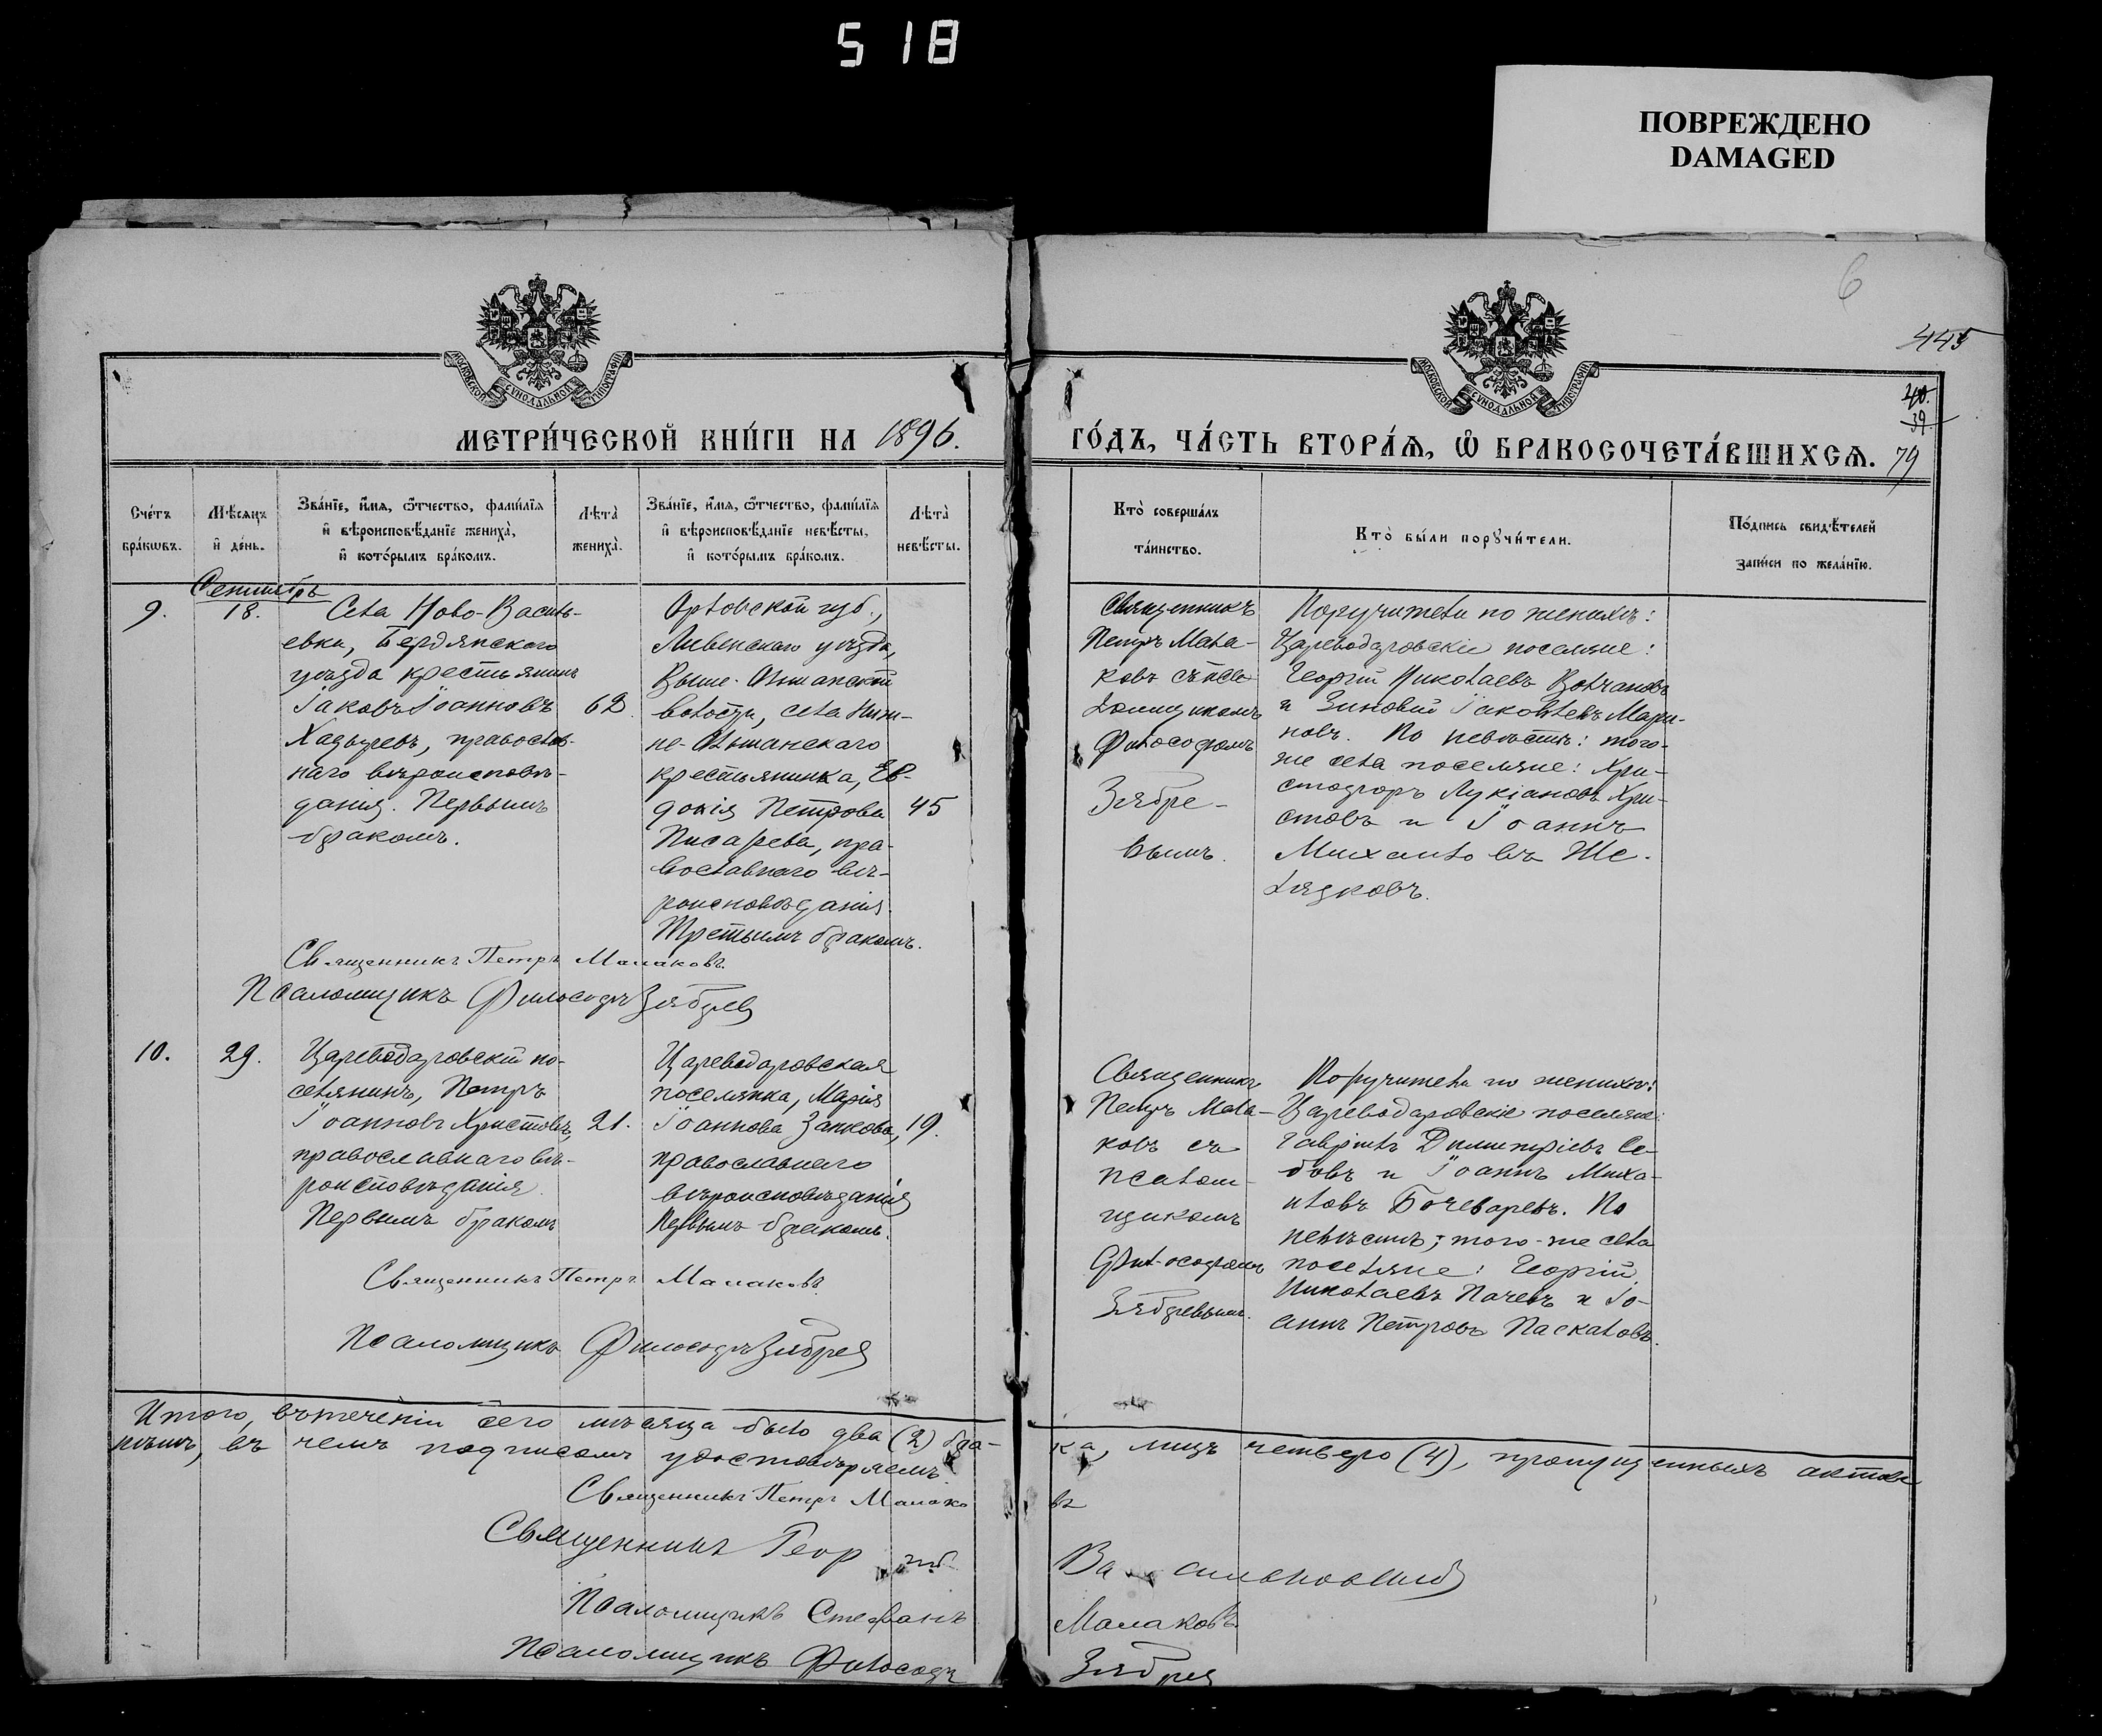 518
ПОВРЕЖДЕНО
DAMAGED
6
445
40.
39
79
МОСКОВСКОЙ СѴНОДАЛЬНОЙ ТИПОГРАФІИ
МОСКОВСКОЙ СѴНОДАЛЬНОЙ ТИПОГРАФІИ
МЕТРИ́ЧЕСКОЙ КНИ́ГИ НА 1896.
ГО́ДЪ, ЧА́СТЬ ВТОРА́Ѧ, Ѽ БРАКОСОЧЕТА́ВШИХСѦ.
Сче́тъ бра́кѡвъ.
Мѣ́сяцъ и҆ де́нь.
Зва́нїе, и҆́мѧ, ѻ҆́тчество, фами́лїѧ
и҆ вѣроисповѣ́данїе жениха̀,
и҆ кото́рымъ бра́комъ.
Лѣта̀ жениха̀.
Зва́нїе, и҆́мѧ, ѻ҆́тчество, фами́лїѧ
и҆ вѣроисповѣ́данїе невѣ́сты,
и҆ кото́рымъ бра́комъ.
Лѣта̀ невѣ́сты.
Кто̀ соверша́лъ та́инство.
Кто̀ бы́ли порꙋчи́тели.
По́дпись свидѣ́телей за́писи по жела́нїю.
Сентябрь
9.
18.
Села Ново-Василь-
евки, Бердянского
уѣзда крестьянинъ
Іаковъ Іоанновъ
православ-
наго вѣроисповѣ-
данія. Первымъ
бракомъ.
62.
Орловской губ.,
Ливенскаго уѣзда,
Выше-Ольшанской
волости, села Ниж-
не-Ольшанскаго
крестьянинка, Ев-
докія Петрова
Писарева, пра-
вославнаго вѣ-
роисповѣданія.
Третьимъ бракомъ.
45
Священникъ
Петръ Мала-
ковъ съ псa-
ломщикомъ
Философомъ
Зябре-
вымъ.
Поручители по женихѣ:
Цареводаровскіе поселяне:
Георгій Николаевъ Волчановъ
и Зиновій Іаковлевъ Мари-
новъ. По невѣстѣ: того-
же села поселяне: Хри-
стофоръ Лукіановъ Хри-
стовъ и Іоаннъ
Михайловъ Же-
лязковъ.
Священникъ Петръ Малаковъ.
Псаломщикъ Философъ Зябрев
10.
29.
Цареводаровскій по-
селянинъ, Петръ
Іоанновъ Христовъ,
православнаго вѣ-
роисповѣданія.
Первымъ бракомъ
21.
Цареводаровская
поселянка, Марія
Іоаннова Запкова,
православнаго
вѣроисповѣданія
Первымъ бракомъ.
19.
Священникъ
Петръ Мала-
ковъ съ
псалом-
щикомъ
Философомъ
Зябревымъ.
Поручители по женихѣ:
Цареводаровскіе поселяне:
Гавріилъ Димитріевъ Се-
бовъ и Іоаннъ Миха-
иловъ Бочеваровъ. По
невѣстѣ; того-же села
поселяне: Георгій
Николаевъ Пачевъ и Іо-
аннъ Петровъ Паскаловъ.
Священникъ Петръ Малаковъ.
Псаломщикъ Философъ Зябрев
Итого, въ теченіи сего мѣсяца было два (2) бра-ка, лицъ четверо (4), пропущенныхъ актовъ
въ чемъ подписомъ удостовѣряемъ
Священникъ Петръ Малаковъ
Священникъ Георгій
Псаломщикъ Стефанъ Малаковъ
Псаломщикъ Философъ Зябрев